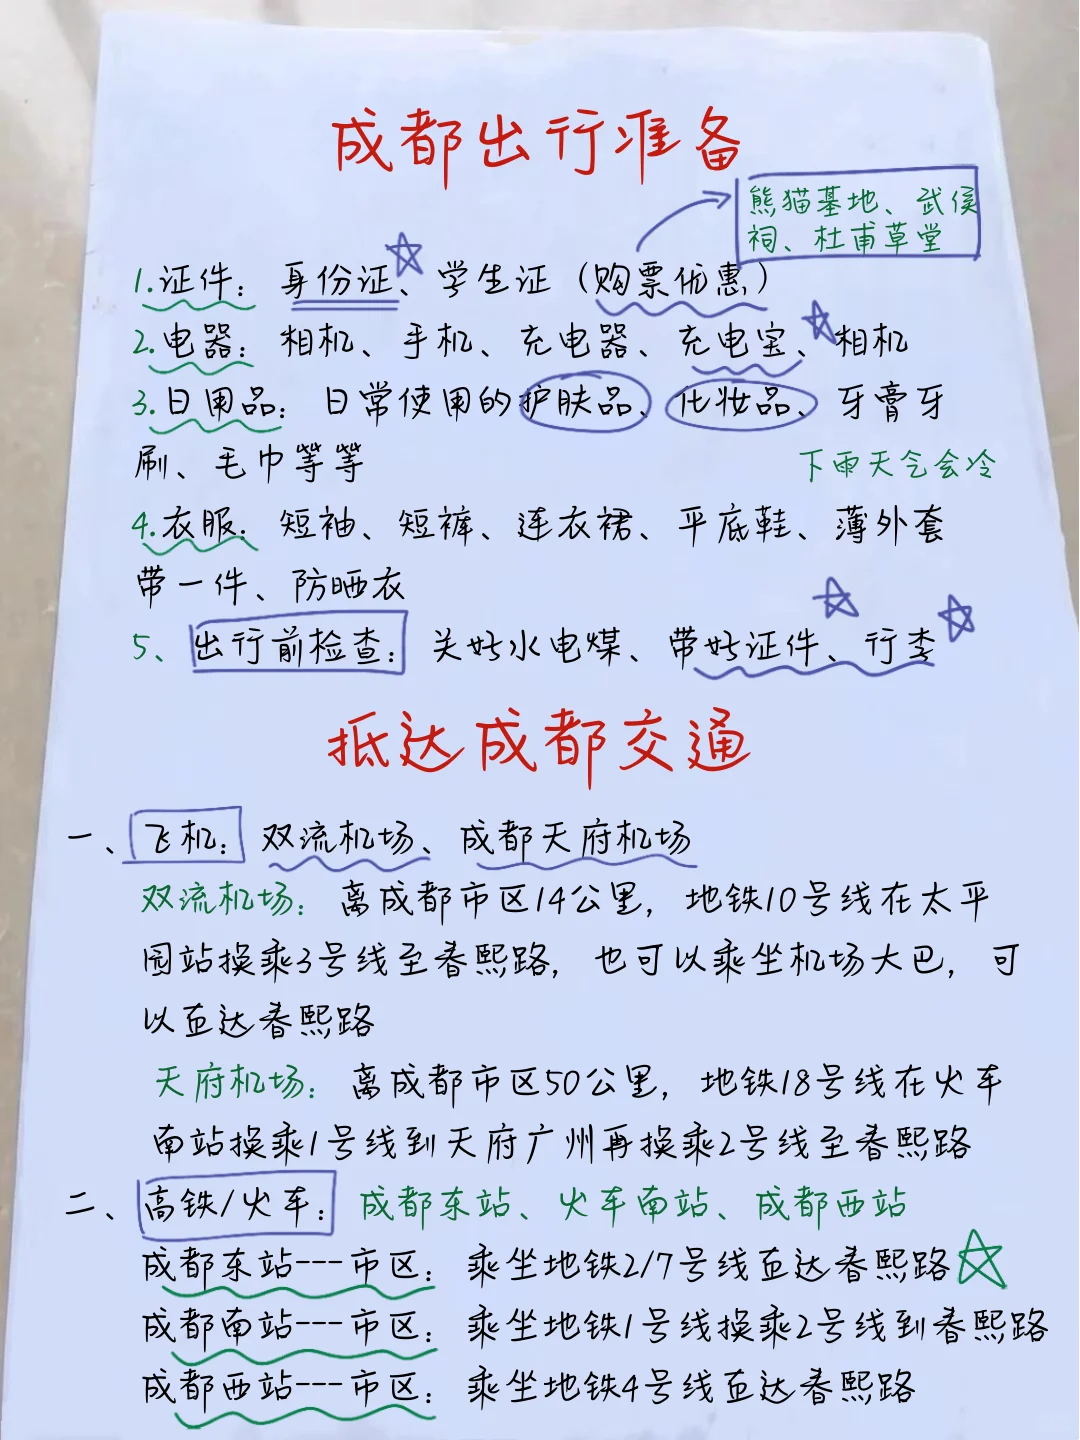 成都出行准备
熊猫基地、武侯
祠、杜甫草堂
1.证件：身份证、学生证（购票优惠）
2.电器：相机、手机、充电器、充电宝、相机
3.日用品：日常使用的护肤品、化妆品、牙膏牙
刷、毛巾等等
下雨天气会冷
4.衣服：短袖、短裤、连衣裙、平底鞋、薄外套
带一件、防晒衣
5、出行前检查：关好水电煤、带好证件、行李
抵达成都交通
一、飞机：双流机场、成都天府机场
双流机场：离成都市区14公里，地铁10号线在太平
园站换乘3号线至春熙路，也可以乘坐机场大巴，可
以直达春熙路
天府机场：离成都市区50公里，地铁18号线在火车
南站换乘1号线到天府广州再换乘2号线至春熙路
二、高铁/火车：成都东站、火车南站、成都西站
成都东站---市区：乘坐地铁2/7号线直达春熙路
成都南站---市区：乘坐地铁1号线换乘2号线到春熙路
成都西站---市区：乘坐地铁4号线直达春熙路